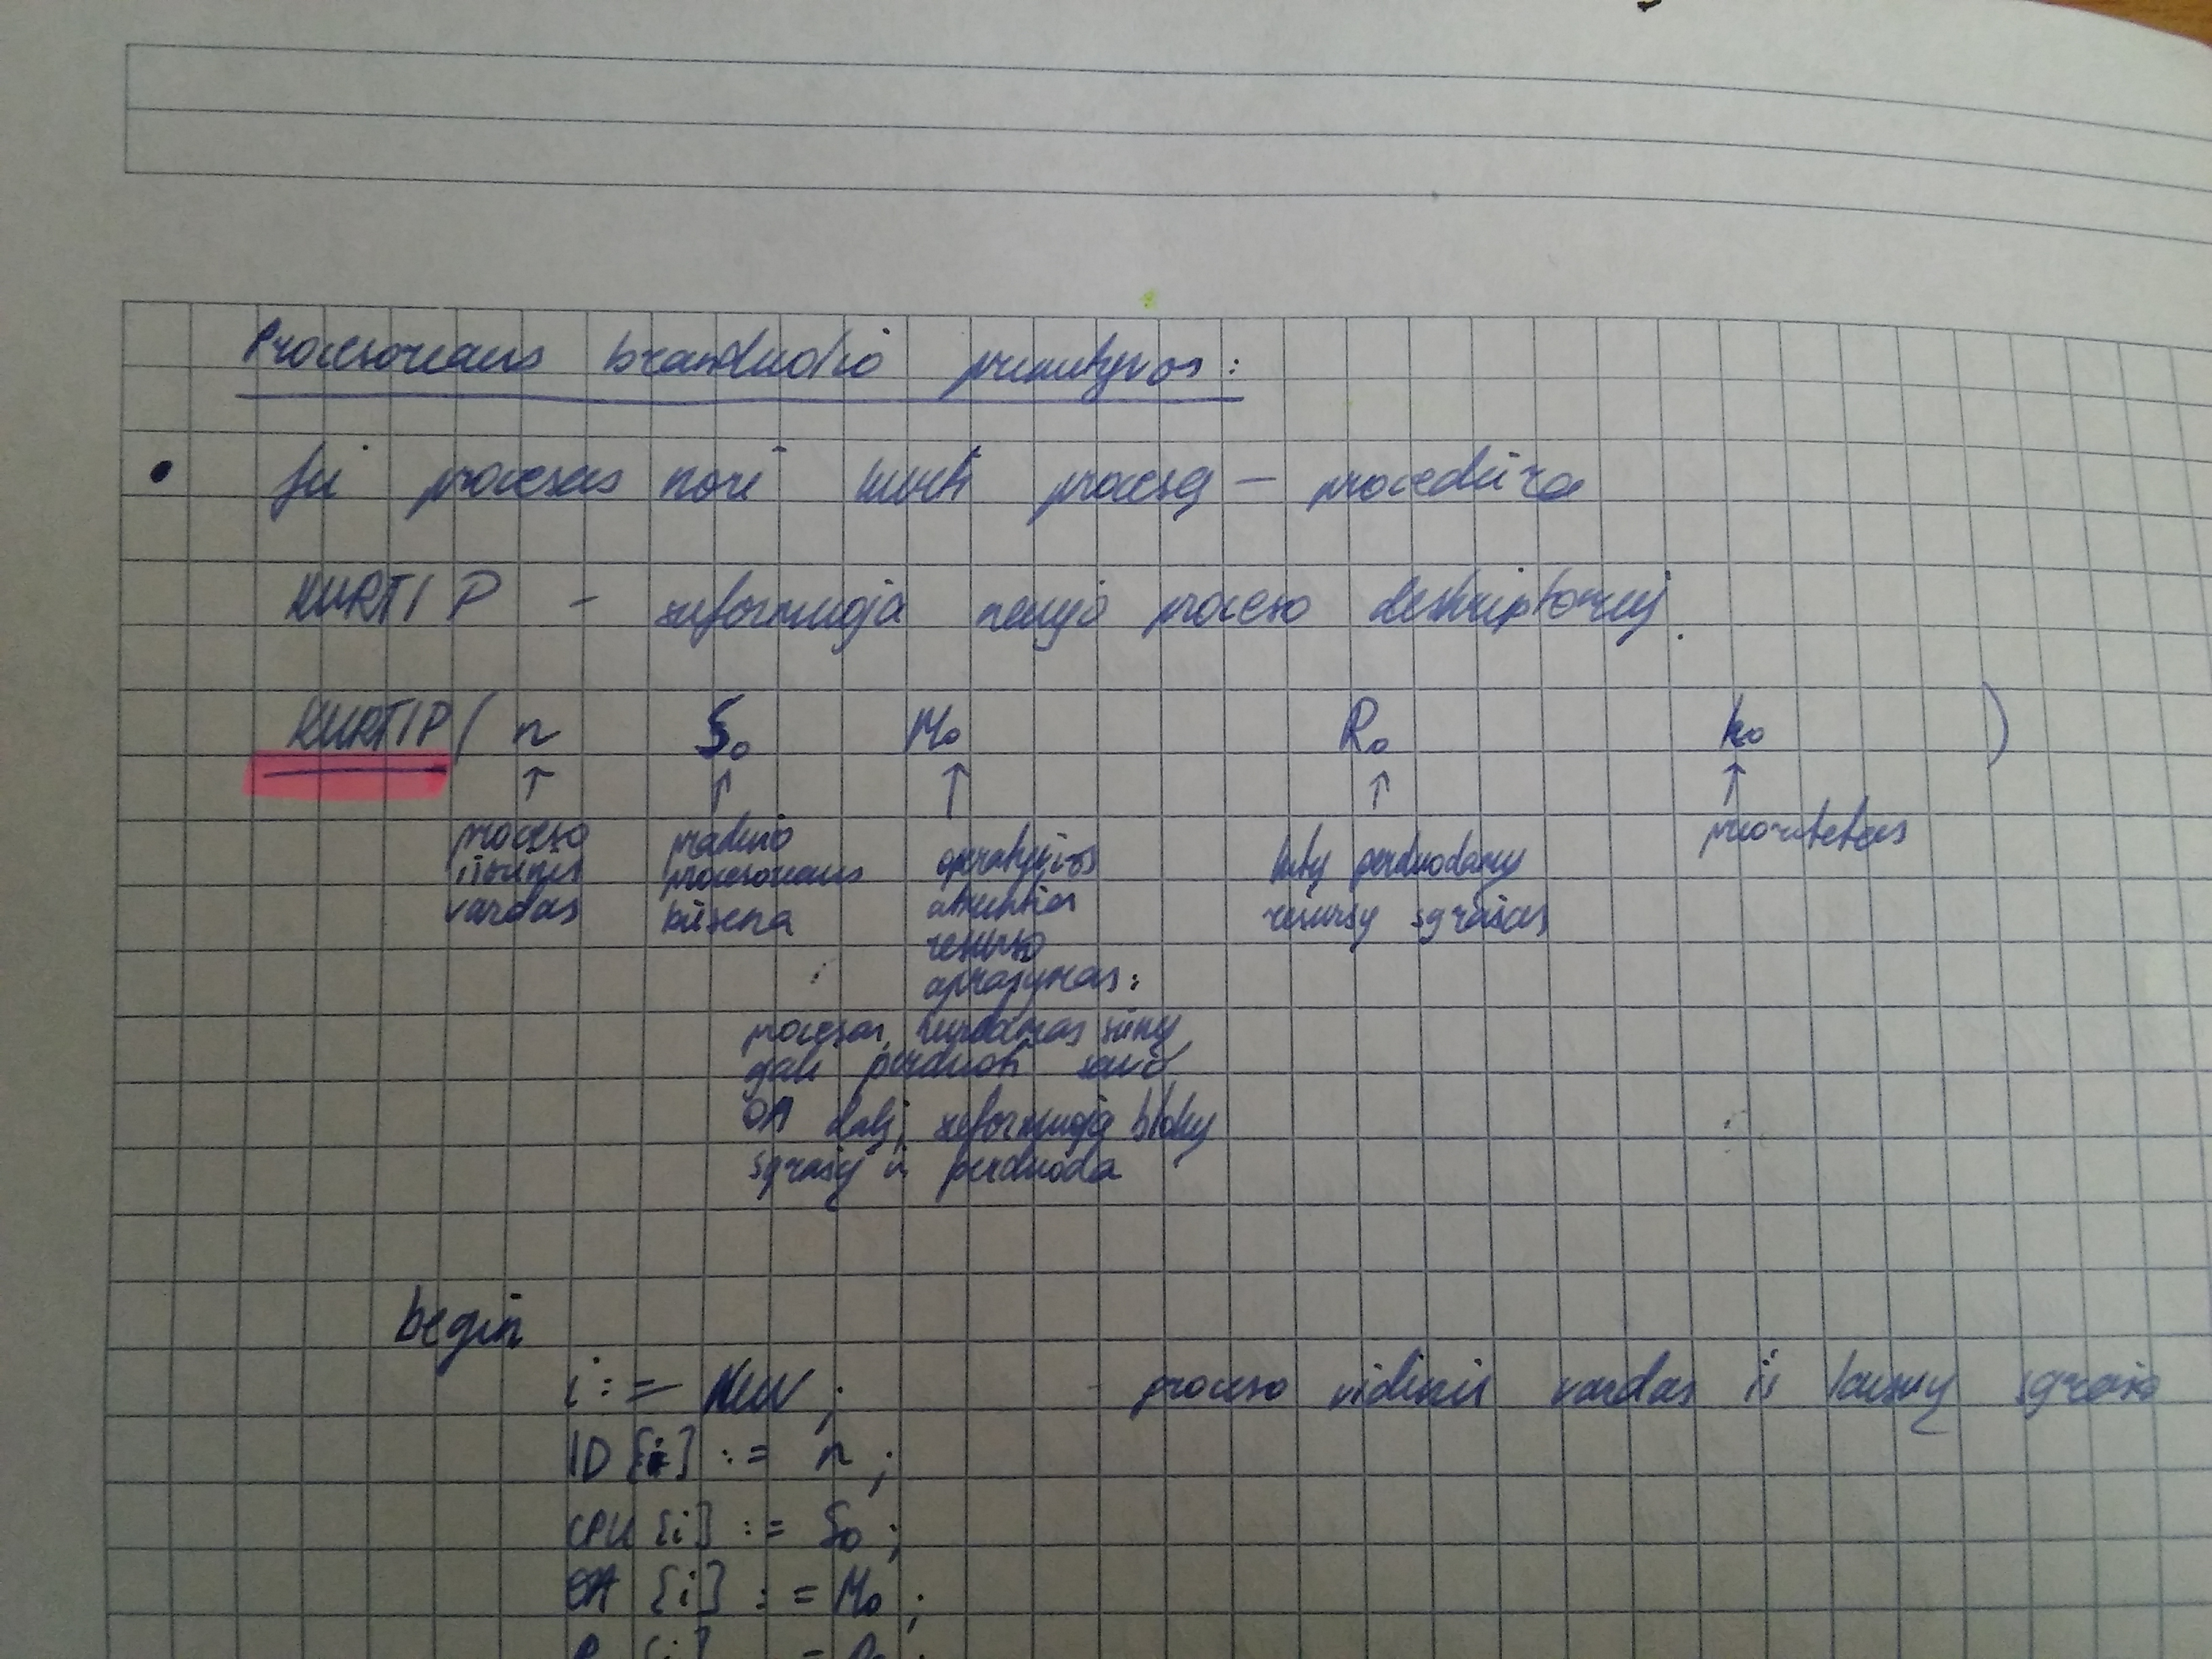 Procesoriaus branduolio primityvos:
• Jei procesas nori kurti procesą – procedūra
KURTIP – suformuoja naujo proceso deskriptorių.
KURTIP ( n S₀ M₀ R₀ k₀ )
↑ ↑ ↑ ↑ ↑
proceso išorinis vardas
pradinė procesoriaus būsena
operatyvios atminties resurso aprašymas:
procesas, kurdamas sūnų
gali perduoti savo
OA dalį, suformuoja blokų
sąrašą ir perduoda
kitų perduodamų resursų sąrašas
prioritetas
begin
i := New; - proceso vidinis vardas iš laisvų sąrašo
ID [i] := n;
CPU [i] := S₀;
OA [i] := M₀;
R [i] := R₀;